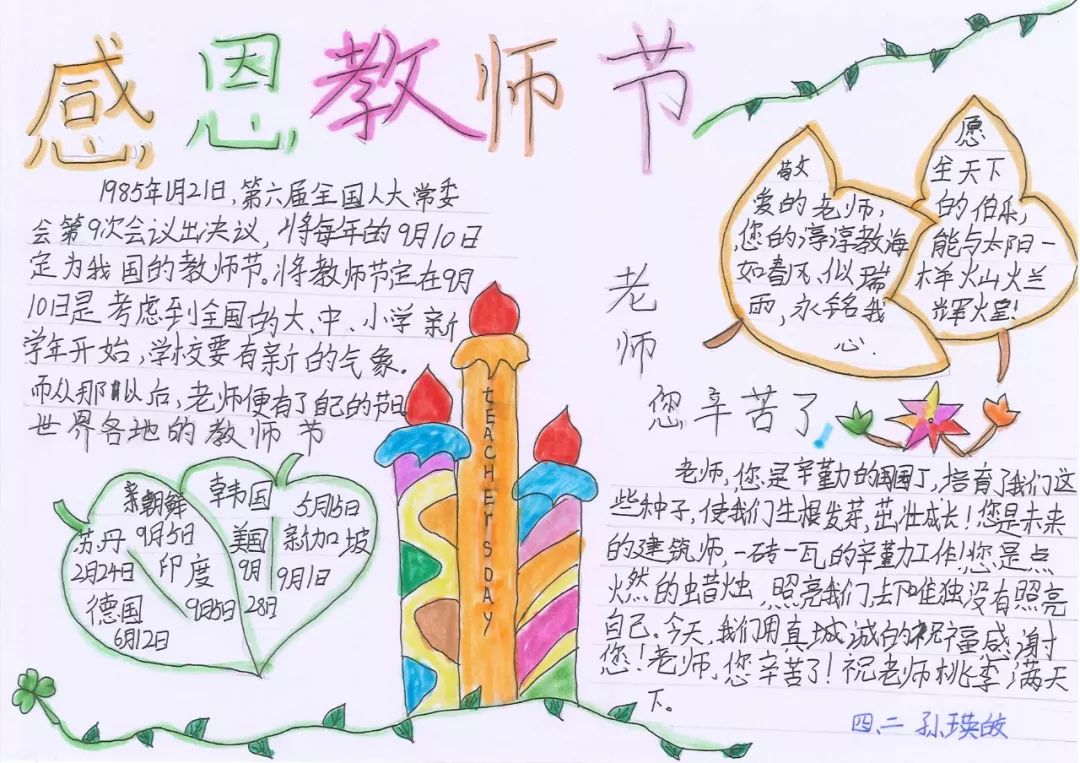 感恩教师节
1985年1月21日,第六届全国人大常委
会第9次会议出决议,将每年的9月10日
定为我国的教师节。将教师节定在9月
10日是考虑到全国的大、中、小学新
学年开始,学校要有新的气象.
而从那以后,老师便有了自己的节日
世界各地的教师节
朝鲜
9月5日
苏丹
2月24日
德国
6月12日
印度
9月5日
韩国
5月15日
美国
9月
28日
新加坡
9月1日
TEACHER'S DAY
敬
爱的老师,
您的谆谆教海
如春风、似瑞
雨,永铭我
心.
愿
全天下
的伯乐,
能与太阳一
样火山火兰
辉煌!
老
师
您辛苦了
老师,您是辛勤的园丁,培育了我们这
些种子,使我们生根发芽,茁壮成长!您是未来
的建筑师,一砖一瓦的辛勤工作!您是点
火然的虫蜡烛,照亮我们,却唯独没有照亮
自己。今天,我们用真诚的祝福感谢
您!老师,您辛苦了!祝老师桃李满天
下。
四、二 孙瑛皎